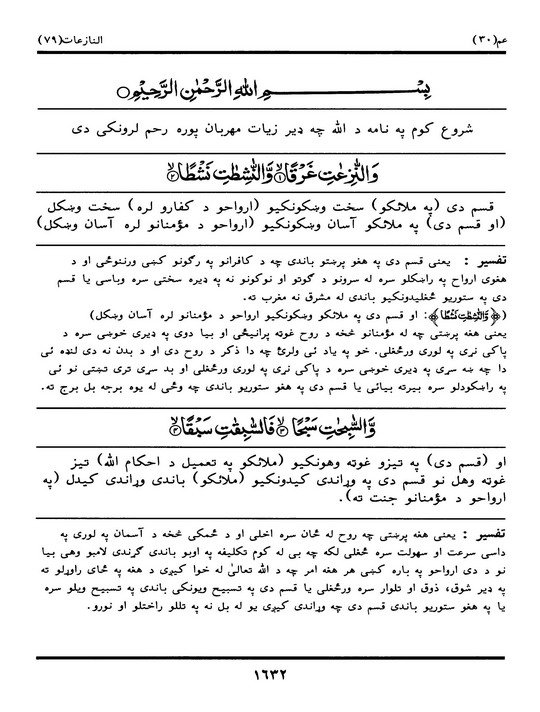 عم(۳۰) النازعات(۷۹)
بِسْمِ اللهِ الرَّحْمٰنِ الرَّحِيْمِ
شروع کوم په نامه د الله چه ډیر زیات مهربان پوره رحم لرونکی دی
وَالنّٰزِعٰتِ غَرْقًا ۱ وَّالنّٰشِطٰتِ نَشْطًا ۲
قسم دی (په ملائکو) سخت وښکونکیو (ارواحو د کفارو لره) سخت وښکل
(او قسم دی) په ملائکو آسان وښکونکیو (ارواحو د مؤمنانو لره آسان وښکل)
تفسیر : یعنی قسم دی په هغو پرښتو باندی چه د کافرانو په رګونو کښی ورننوځی او د
هغوی ارواح په راښکلو سره له سرونو د ګوتو او نوکونو نه په ډیره سختی سره وباسی یا قسم
دی په ستوریو ځغلیدونکیو باندی له مشرق نه مغرب ته.
(﴿وَّالنّٰشِطٰتِ نَشْطًا﴾: او قسم دی په ملائکو وښکونکیو ارواحو د مؤمنانو لره آسان وښکل)
یعنی هغه پرښتی چه له مؤمنانو څخه د روح غوټه پرانیځی او بیا دوی په ډیری خوښی سره د
پاکی نړی په لوری ورځغلی. خو په یاد ئی ولرئ چه دا ذکر د روح دی او د بدن نه دی لنډه ئی
دا چه ښه سړی په ډیری خوښی سره د پاکی نړی په لوری ورځغلی او بد سړی تری تښتی نو ئی
په راښکودلو سره بیرته بیائی یا قسم دی په هغو ستوریو باندی چه وځی له یوه برجه بل برج ته.
وَّالسّٰبِحٰتِ سَبْحًا ۳ فَالسّٰبِقٰتِ سَبْقًا ۴
او (قسم دی) په تیزو غوټه وهونکیو (ملائکو په تعمیل د احکام الله) تیز
غوټه وهل نو قسم دی په وړاندی کیدونکیو (ملائکو) باندی وړاندی کیدل (په
ارواحو د مؤمنانو جنت ته).
تفسیر : یعنی هغه پرښتی چه روح له ځان سره اخلی او د ځمکی څخه د آسمان په لوری په
داسی سرعت او سهولت سره ځغلی لکه چه بی له کوم تکلیفه په اوبو باندی ګړندی لامبو وهی بیا
نو د دی ارواحو په باره کښی هر هغه امر چه د الله تعالیٰ له خوا کیږی د هغه په ځای راوړلو ته
په ډیر شوق، ذوق او تلوار سره ورځغلی یا قسم دی په تسبیح ویونکی باندی په تسبیح ویلو سره
یا په هغو ستوریو باندی قسم دی چه وړاندی کیږی یو له بل نه په تللو راختلو او نورو.
۱٦۳۲